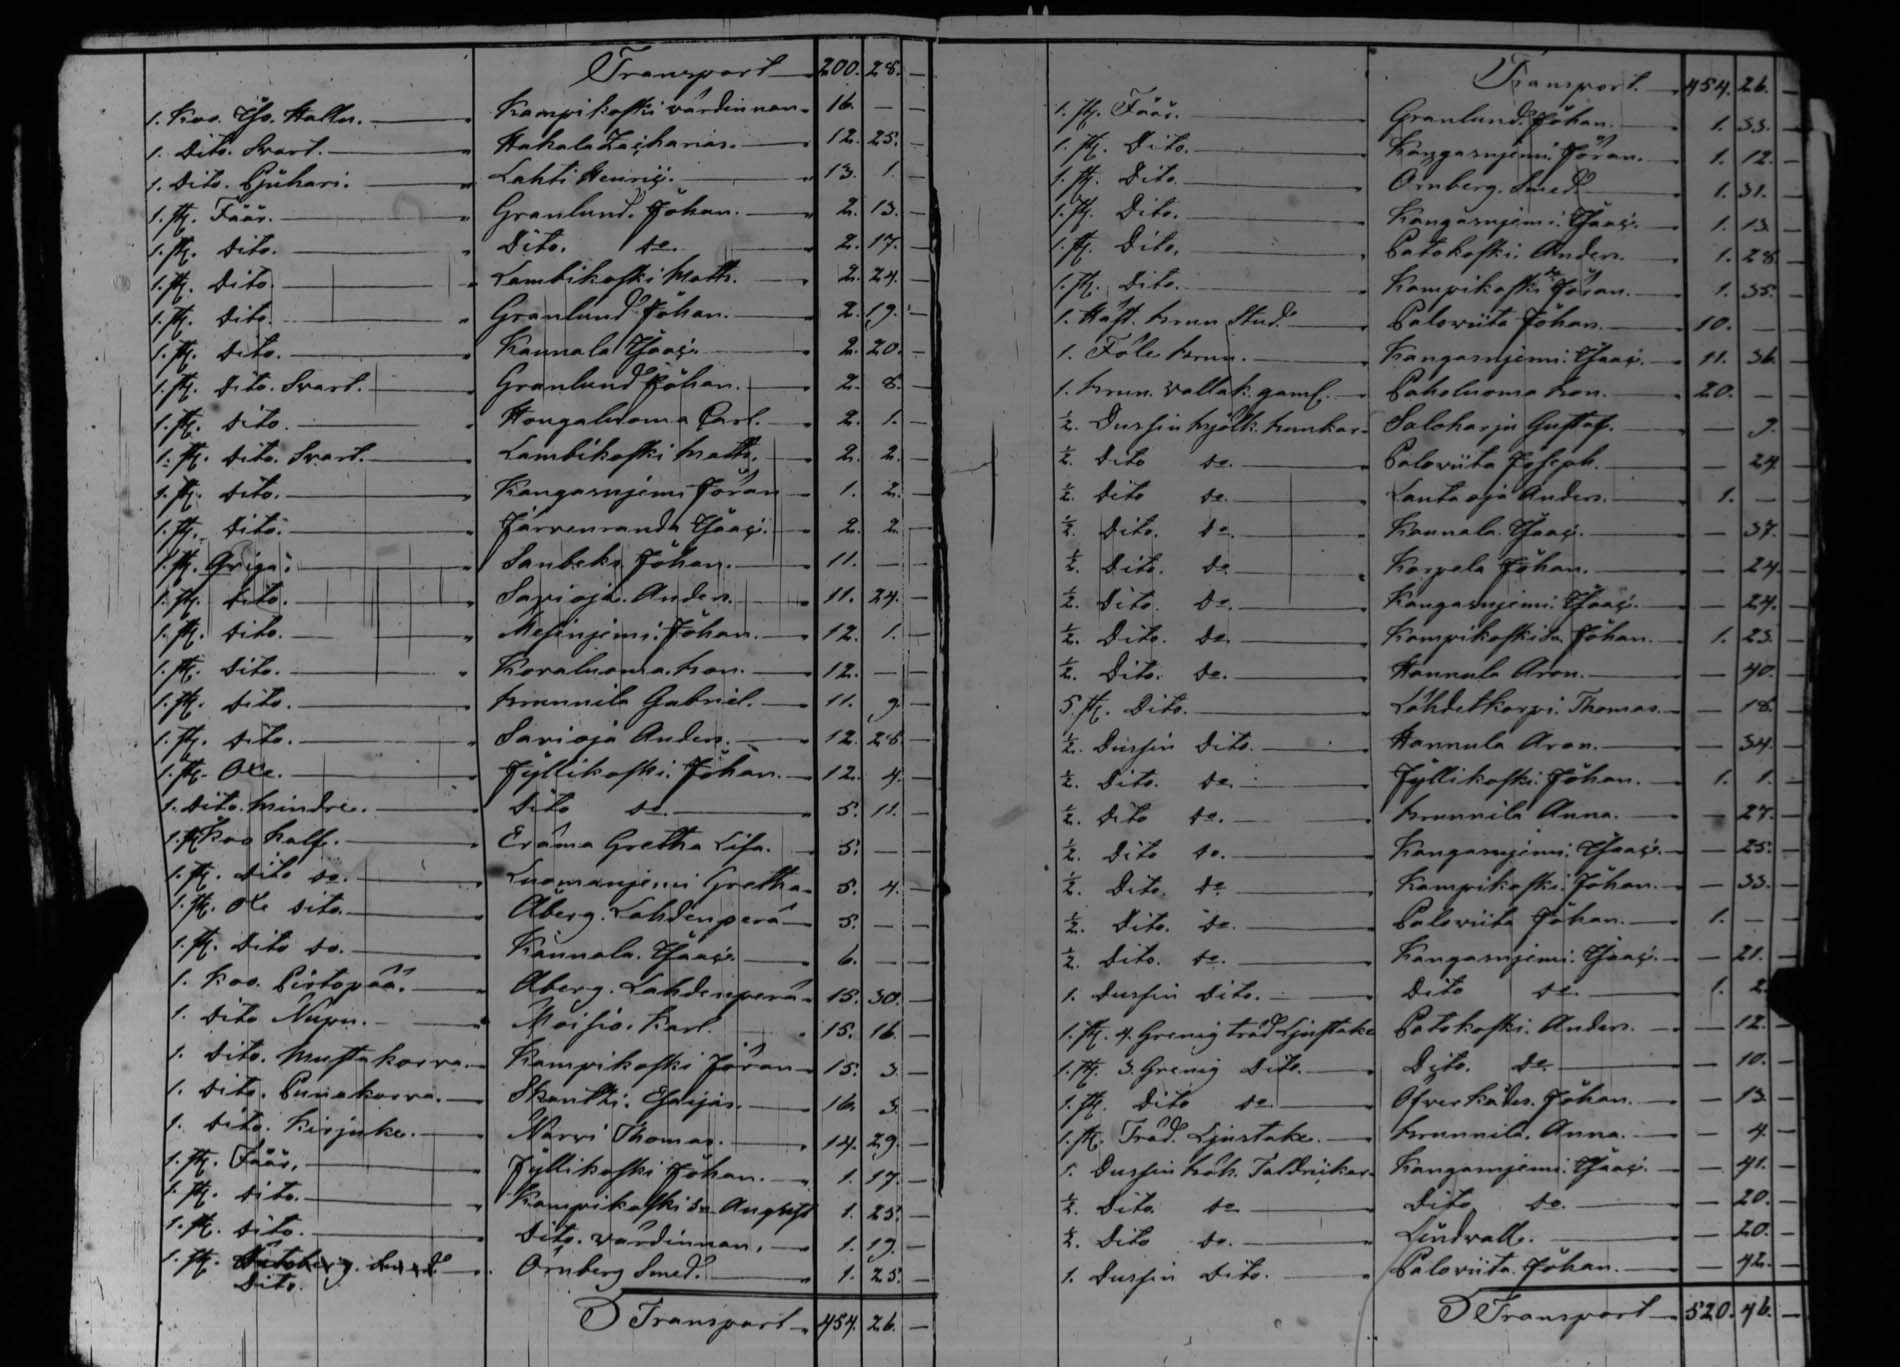 Transport 200. 28. —
1. Koo. Kampikoski värdinnan 16. — —
1. Dito. Svart. Hakala Zacharias. 12. 25. —
1. Dito. Lahti Henric. 13. 1. —
1. st. Fäår. Granlund. Johan. 2. 13. —
1. st. Dito. Dito. do. 2. 17. —
1. st. Dito. Lambikoski Matts. 2. 24. —
1. st. Dito. Granlund Johan. 2. 19. —
1. st. Dito. Kannala Isaac. 2. 20. —
1. st. Dito. Svart. Granlund Johan. 2. 8. —
1. st. Dito. Hongaluoma Carl. 2. 1. —
1. st. Dito. Svart. Lambikoski Matts. 2. 2. —
1. st. Dito. Kangasnjemi Jöran 1. 2. —
1. st. Dito. Järvenranda Isaac. 2. 2. —
1. st. Qviga. Johan. 11. — —
1. st. Dito. Savioja. Anders. 11. 24. —
1. st. Dito. Johan. 12. 1. —
1. st. Dito. Koraluoma. 12. — —
1. st. Dito. Krunnila Gabriel. 11. 9. —
1. st. Dito. Savioja Anders. 12. 28. —
1. st. Oxe. Jyllikoski. Johan. 12. 4. —
1. Dito. Mindre. Dito do. 5. 11. —
1. st. Koo Kalf. Gretha Lisa. 5. — —
1. st. Dito do. Luomanjemi Gretha 5. 4. —
1. st. Oxe Dito. Åberg. Lahdenperä 5. — —
1. st. Dito do. Kannala. Isaac 6. — —
1. Koo. Åberg. Lahdenperä 15. 30. —
1. Dito Nupu. Moisio. Karl. 15. 16. —
1. Dito. Mustakorva. Kampikoski Jöran 15. 3. —
1. Dito. Punakorva. Esaijas. 16. 3. —
1. Dito. Kirjuke. Narvi Thomas. 14. 29. —
1. st. Fäår. Jyllikoski Johan. 1. 17. —
1. st. Dito. Kampikoski August 1. 25. —
1. st. Dito. Dito. värdinnan. 1. 19. —
1. st. Dito. Örnberg Smed. 1. 25. —
Transport 454. 26. —
Transport. 454. 26. —
1. st. Fäår. Granlund. Johan. 1. 33. —
1. st. Dito. Kangasnjemi. Jöran. 1. 12. —
1. st. Dito. Örnberg. Smed 1. 31. —
1. st. Dito. Kangasnjemi. Isaac. 1. 13. —
1. st. Dito. Patokoski. Anders. 1. 28. —
1. st. Dito. Kampikoski Jöran. 1. 35. —
1. Häst. brun Stud. Paloviita Johan. 10. — —
1. Föle brun. Kangasnjemi. Isaac. 11. 36. —
1. brun. vallak. gaml. Paholuoma 20. — —
1/2. Dussin Mjölk. bunkar. Saloharju Gustaf. — 9. —
1/2. Dito do. Paloviita Joseph. — 24 —
1/2. Dito do. Lautaoja Anders. 1. — —
1/2. Dito. do. Kannala. Isaac. — 37. —
1/2. Dito. do. Korpela Johan. — 24. —
1/2. Dito. do. Kangasnjemi. Isaac. — 24. —
1/2. Dito. do. Kampikoski Johan. 1. 23. —
1/2. Dito. do. Hannula Aron. — 40. —
5. st. Dito. Lähdetkorpi. Thomas. — 18. —
1/2. Dussin Dito. Hannula Aron. — 34. —
1/2. Dito. do. Jyllikoski. Johan. 1. 1. —
1/2. Dito do. Krunnila Anna. — 27. —
1/2. Dito do. Kangasnjemi. Isaac. — 25. —
1/2. Dito. do. Kampikoski. Johan. — 33. —
1/2. Dito. do. Paloviita Johan. 1. — —
1/2. Dito. do. Kangasnjemi. Isaac. — 21. —
1. Dussin Dito. Dito do. 1. 2.
1. st. 4. Grenig träd Ljustake Patokoski. Anders. — 12. —
1. st. 3. Grenig Dito. Dito. do. — 10. —
1. st. Dito do. Johan. — 13. —
1. st. Träd. Ljustake. Krunnila. Anna. — 4. —
1. Dussin Taldrickar. Kangasnjemi. Isaac. — 41. —
1/2. Dito. do. Dito do. — 20. —
1/2. Dito do. Lindvall. — 20. —
1. Dussin Dito. Paloviita. Johan. — 42. —
Transport 520. 46. —